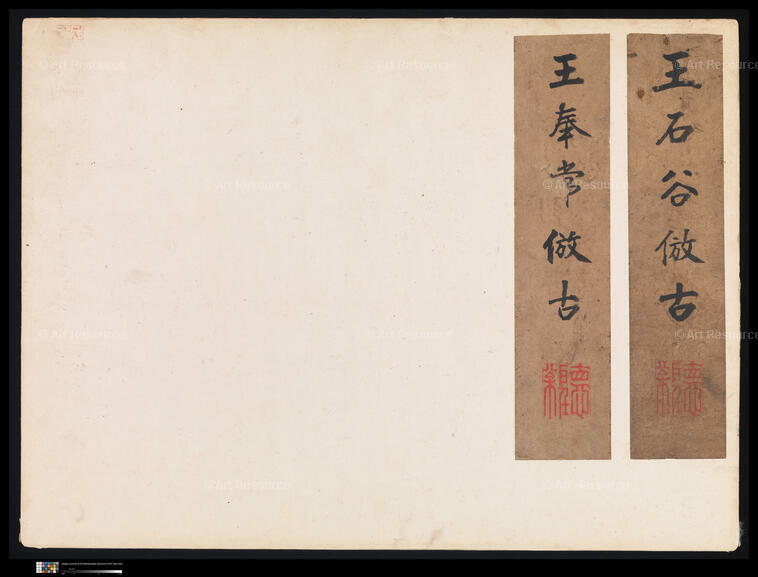 王石谷倣古
王奉常倣古
Art Resource
Art Resource
Art Resource
Art Resource
Art Resource
Art Resource
Art Resource
Art Resource
Art Resource
Art Resource
Art Resource